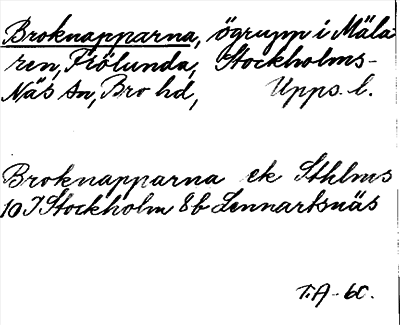 Broknapparna, ögrupp i Mäla-
ren, Frölunda, Stockholms-
Näs sn, Bro hd, Upps. l.
Broknapparna ek Sthlms
10 I Stockholm 8b Lennartsnäs
T.A-60.